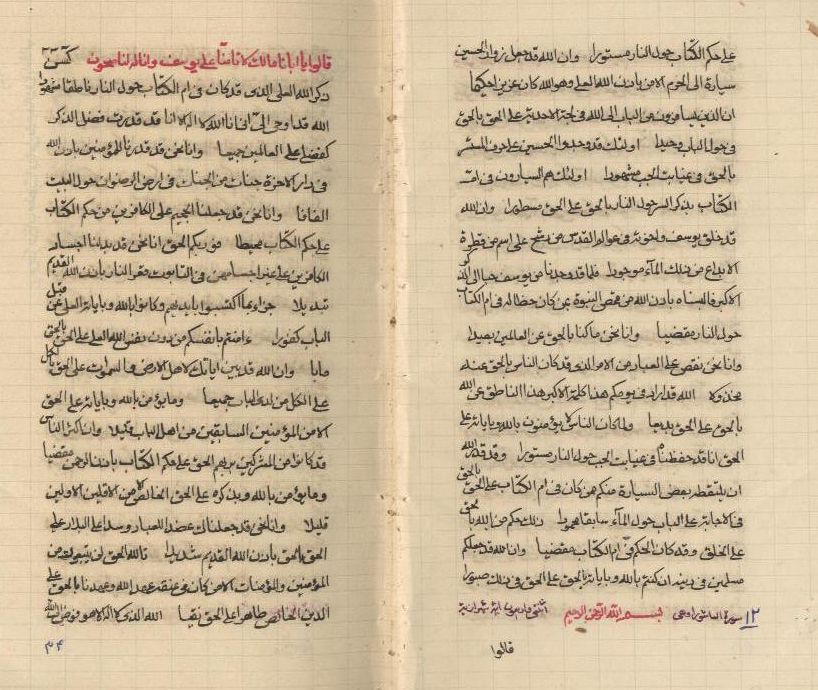 على حكم الكتاب حول النار مستورا وان الله قد جعل زوار الحسين
سيارة الى الحرم الامن باذن الله العلى وهو الله كان عزيزا حكيما
ان الذين يسافرون من الباب الى الله فى لجة الاحدية على الحق بالحق
فى حول الباب وحيدا اولئك قد وجدوا الحسين على حرف المستسر
بالحق فى غيابت الجب مشهودا اولئك هم السيارون فى ام
الكتاب بذكر السر حول النار بالحق على الحق مسطورا وان الله
قد خلق يوسف واخوته فى عوالم القدس من رشح على اسم من قطرة
الابداع من ذلك الماء موجودا فلما قد وجدنا من يوسف حبا لذكر الله
الاكبر فالبسناه باذن الله من قمص النبوة بمن كان حظا له فى ام الكتاب
حول النار مقضيا وانا نحن ما كنا بالحق عن العالمين بعيدا
وانا نحن نقص على العباد من الامر الذى قد كان الناس بالحق عنه
مخذولا الله قد اراد فى يومكم هذا كلمة الاكبر هذا الناطق عن الله
بالحق على الحق بديعا ولما كان الناس لا يؤمنون بالله وباياته على
الحق انا قد حفظناه فى غيابت الجب حول النار مستورا وقد قدر الله
ان يلتقطه بعض السيارة منكم من كان فى ام الكتاب على الحق بالحق
فى الاجابة على الباب حول الماء سابقا محمودا ذلك حكم من الله بالحق
على الخلق وقد كان الحكم فى ام الكتاب مقضيا وان الله قد جعلكم
مسلمين فى دينه ان كنتم بالله وباياته بالحق على الحق فى ذلك صبورا
١٢ سورة العاشورا وهى بسم الله الرحمن الرحيم اثنى واربعون اية شيرازية
قالوا
قالوا يا ابانا مالك لا تامنا على يوسف وانا له لناصحون
ذكر الله العلى الذى قد كان فى ام الكتاب حول النار ناطقا مشهودا
الله قد اوحى الى انى انا الله لا اله الا انا قد قدرت فضل الذكر
كفضلى على العالمين جميعا وانا نحن قد قدرنا للمؤمنين باذن الله
فى دار الاخرة جنات من الجنات فى ارض الرضوان حول البيت
الفافا وانا نحن قد جعلنا الجحيم على الكافرين من حكم الكتاب
على حكم الكتاب محيطا فوربكم الحق انا نحن قد بدلنا اجساد
الكافرين على غير اجسامهم فى التابوت قعر النار باذن الله القديم
تبديلا جزاء بما اكتسبوا بايديهم وكانوا بالله وباياته العلى عن قبل
الباب كفورا ءامنتم بانفسكم من دون نفس الله العلى على الحق بالحق
مابا وان الله قد بين اياتك لاهل الارض والسموات على الحق بالكل
على الكل من لدى الباب جميعا وما يؤمن بالله وباياته على الحق
الا من المؤمنين السابقين من اهل الباب قليلا وان اكثر الناس
قد كانوا من المشركين بربهم الحق على حكم الكتاب باذن الرحمن مقضيا
وما يؤمن بالله وبذكره على الحق الخالص الا من الاقلين الاولين
قليلا وانا نحن قد جعلناك عضدا للعباد وسدا على البلاد على
الحق بالحق باذن الله القديم شديدا تالله الحق لن يتبعوك من
المؤمنين والمؤمنات الا من كان فى عنقه عهد الله وعهدنا بالحق على
الدين الخالص طاهرا على الحق نقيا الله الذى لا اله الا هو وفوض الله
٣٤